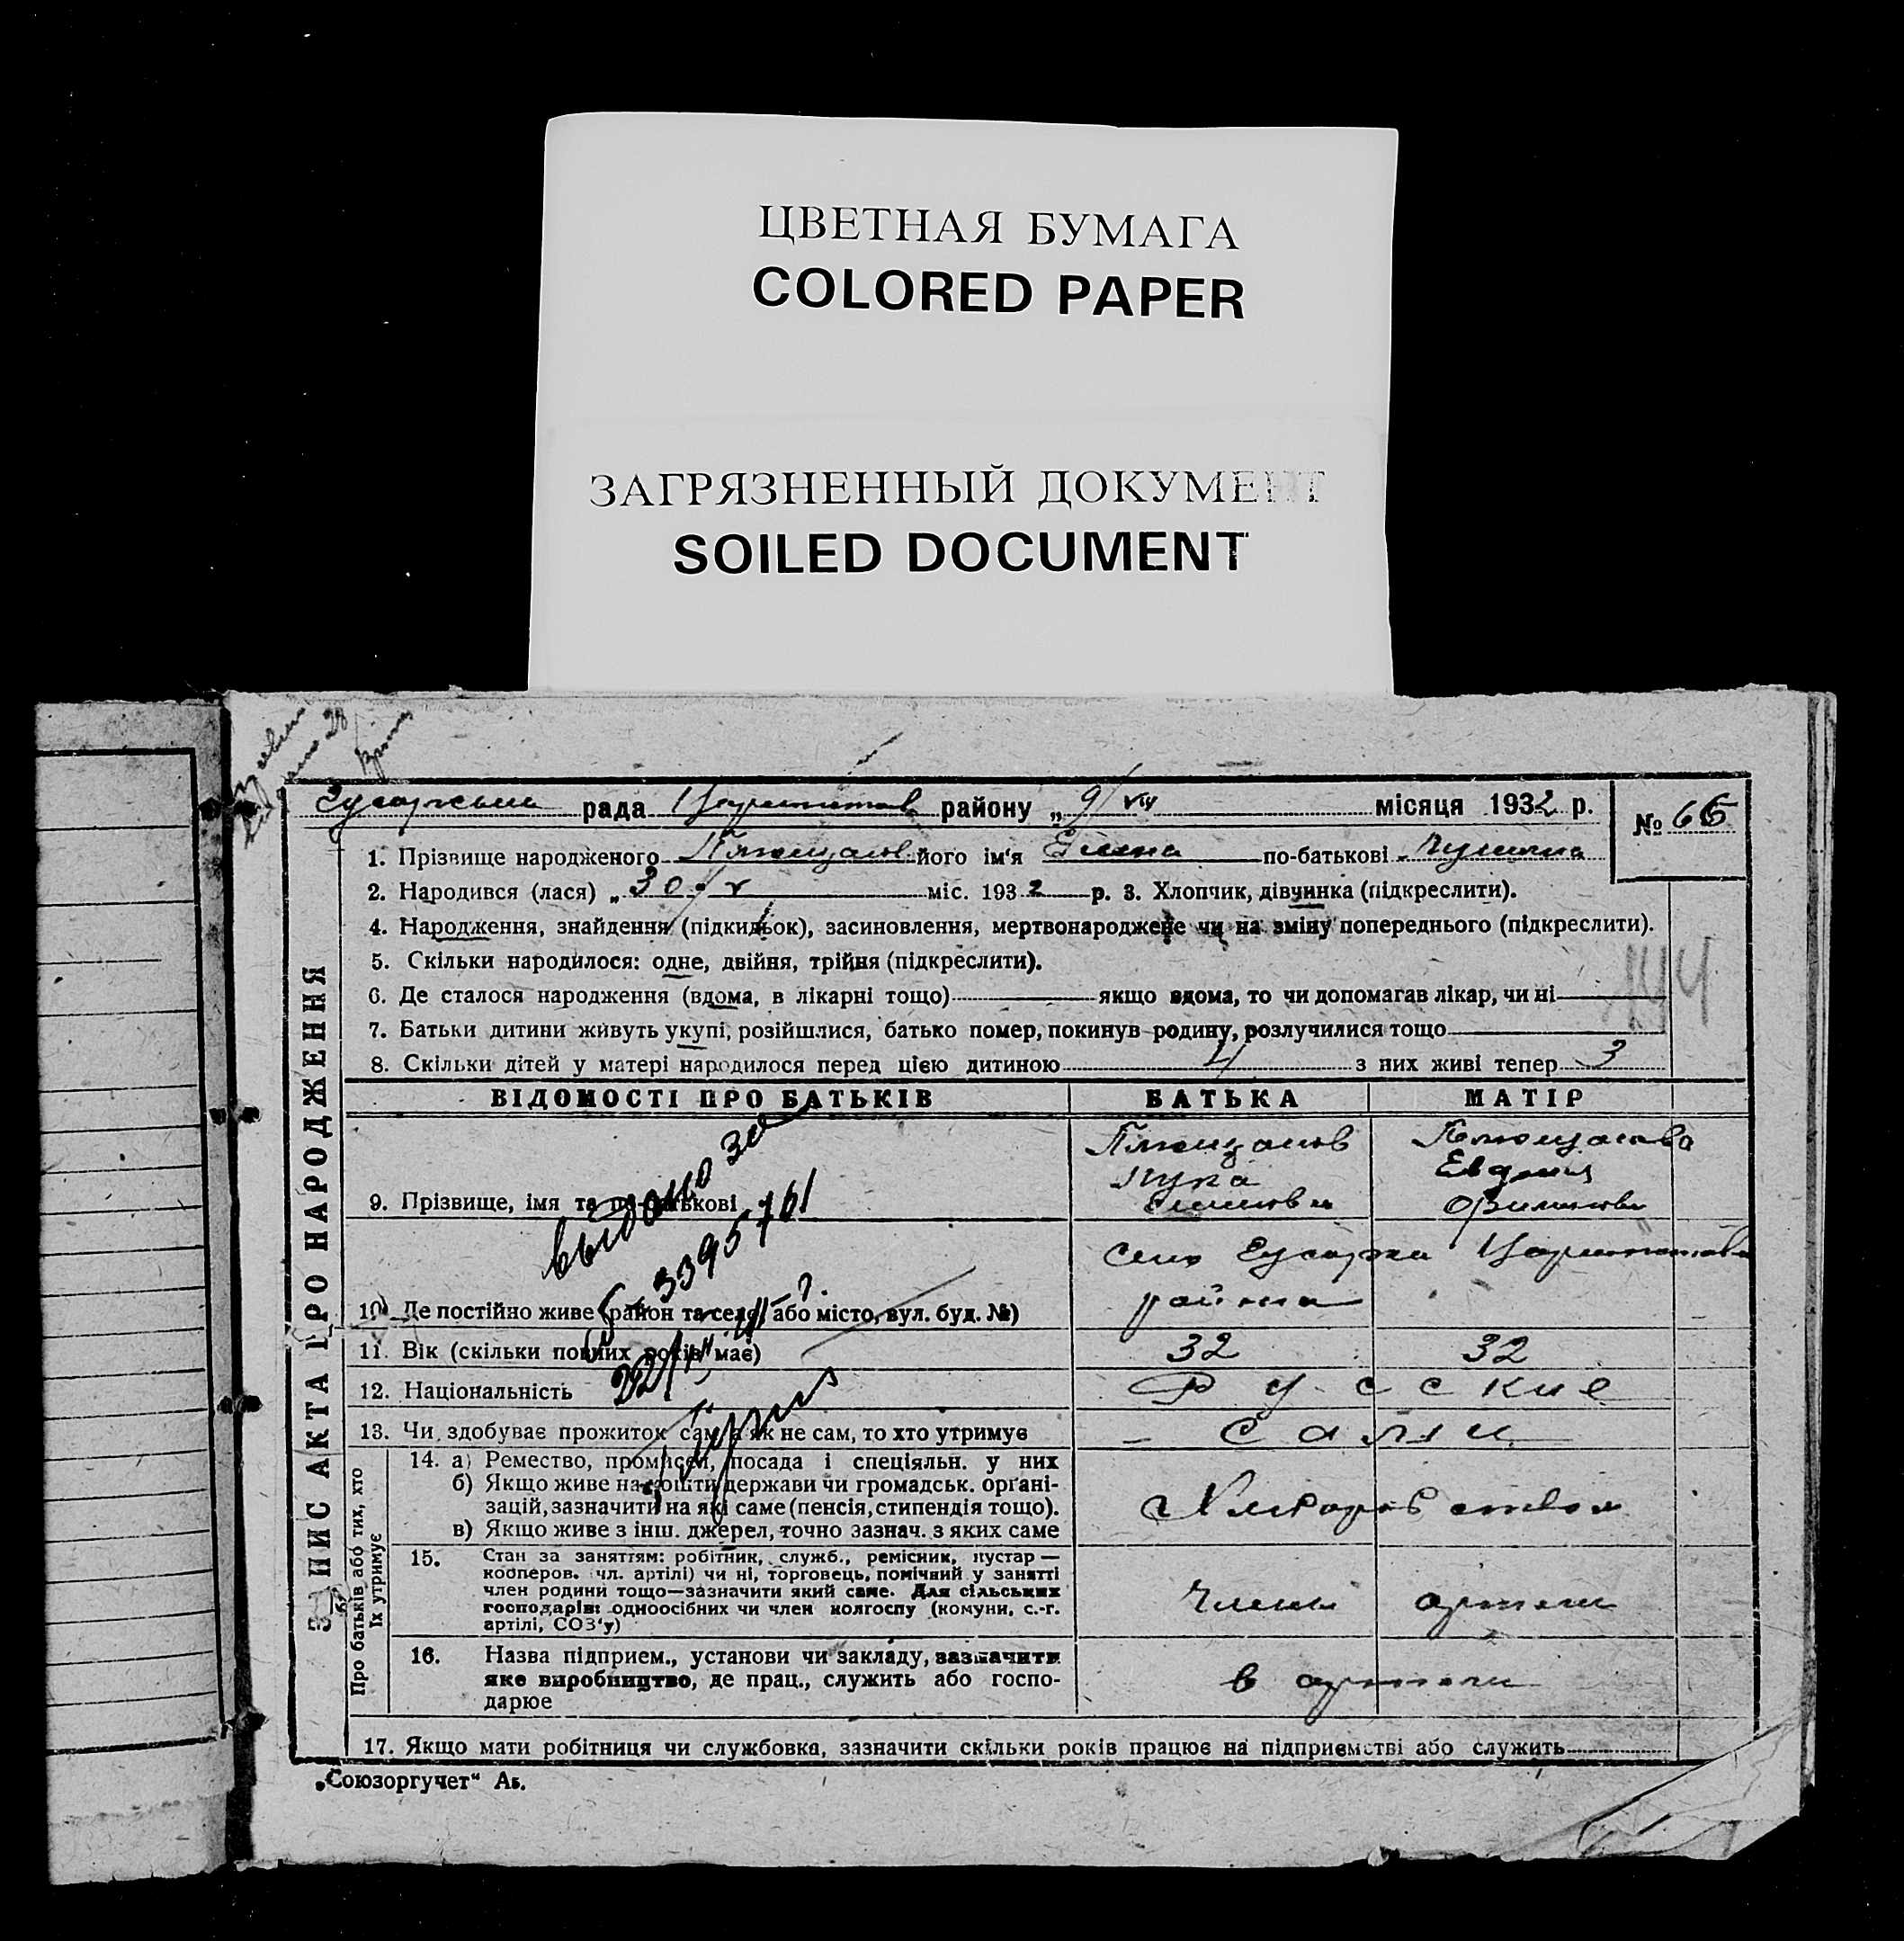 ЦВЕТНАЯ БУМАГА
COLORED PAPER
ЗАГРЯЗНЕННЫЙ ДОКУМЕНТ
SOILED DOCUMENT
рада району „9/VII місяця 1932 р.
№ 66
1. Прізвище народженого його ім'я по-батькові
2. Народився (лася) „30/V міс. 1932 р. 3. Хлопчик, дівчинка (підкреслити).
4. Народження, знайдення (підкидьок), засиновлення, мертвонароджене чи на зміну попереднього (підкреслити).
5. Скільки народилося: одне, двійня, трійня (підкреслити).
6. Де сталося народження (вдома, в лікарні тощо) якщо вдома, то чи допомагав лікар, чи ні
7. Батьки дитини живуть укупі, розійшлися, батько помер, покинув родину, розлучилися тощо
8. Скільки дітей у матері народилося перед цією дитиною 4 з них живі тепер 3
ЗАПИС АКТА ПРО НАРОДЖЕННЯ
ВІДОМОСТІ ПРО БАТЬКІВ БАТЬКА МАТІР
9. Прізвище, імя та по-батькові
Лука
10) Де постійно живе (район та село, або місто, вул. буд. №)
село района
11. Вік (скільки повних років має) 32 32
12. Національність Русские
13. Чи здобуває прожиток сам, а як не сам, то хто утримує - сами
Про батьків або тих, хто
їх утримує
14. а) Ремество, промисел, посада і спеціяльн. у них
б) Якщо живе на кошти держави чи громадськ. органі-
зацій, зазначити на які саме (пенсія, стипендія тощо).
в) Якщо живе з інш. джерел, точно зазнач. з яких саме
15. Стан за заняттям: робітник, служб., ремісник, кустар —
кооперов. чл. артілі) чи ні, торговець, помічний у занятті
член родини тощо—зазначити який саме. Для сільських
господарів: одноосібних чи член колгоспу (комуни, с.-г.
артілі, СОЗ'у)
Члены артели
16. Назва підприєм., установи чи закладу, зазначити
яке виробництво, де прац., служить або госпо-
дарює
в артели
17. Якщо мати робітниця чи службовка, зазначити скільки років працює на підприємстві або служить
„Союзоргучет" Аз.
выдано
3395761
144